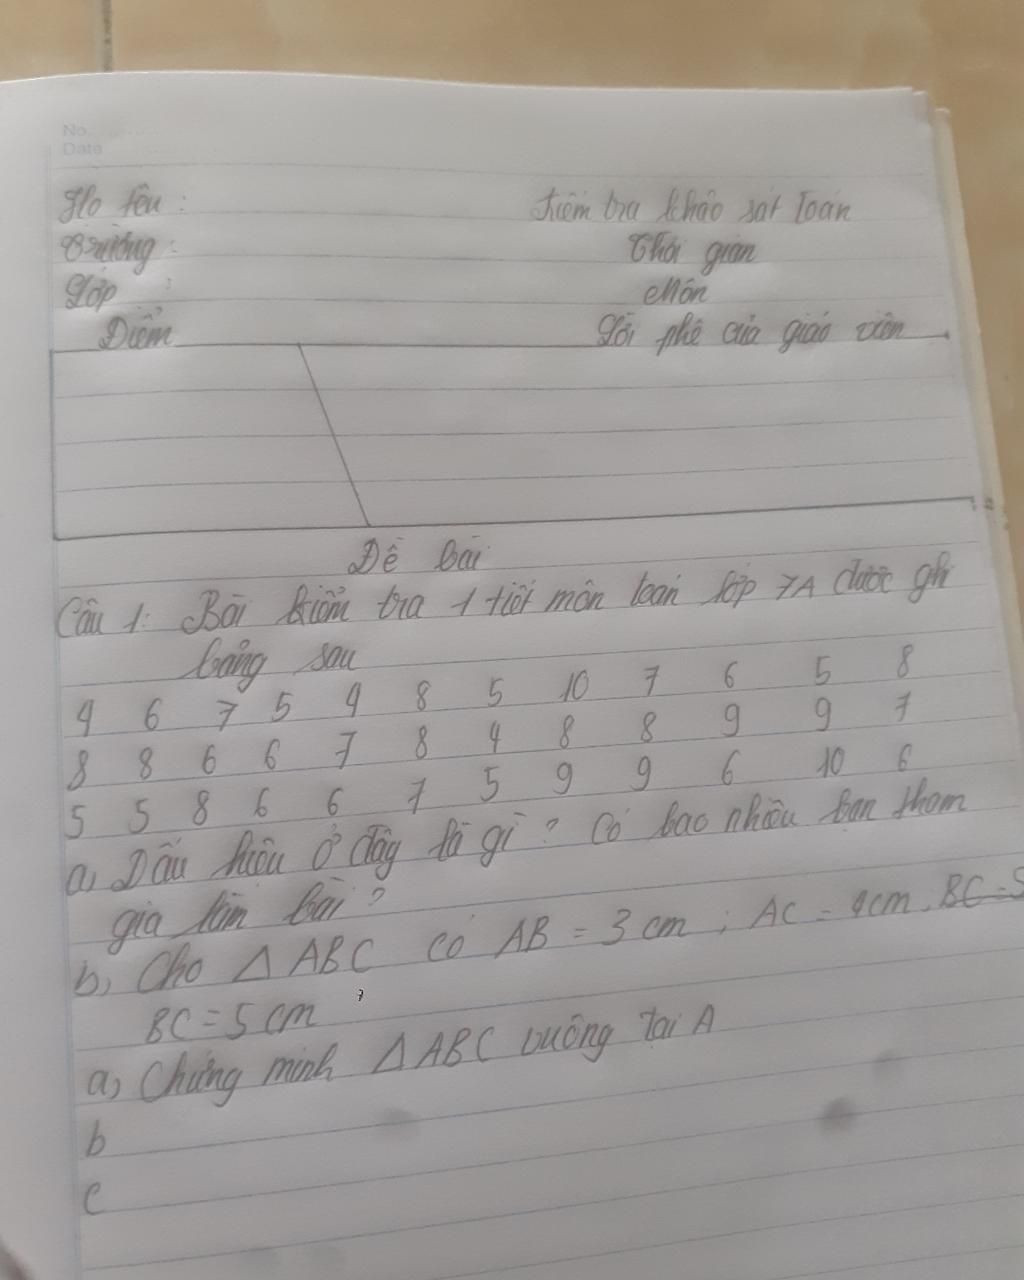 No.
Date
Họ tên :
Kiểm tra khảo sát Toán
Trường :
Thời gian
Lớp :
Môn
Điểm
Lời phê của giáo viên
Đề bài
Câu 1: Bài kiểm tra 1 tiết môn toán lớp 7A được ghi
bảng sau
4 6 7 5 4 8 5 10 7 6 5 8
8 8 6 6 7 8 4 8 8 9 9 7
5 5 8 6 6 7 5 9 9 6 10 6
a, Dấu hiệu ở đây là gì? Có bao nhiêu bạn tham
gia làm bài?
b, Cho △ ABC có AB = 3 cm ; AC = 4cm, BC = 5
BC = 5 cm
a, Chứng minh △ ABC vuông tại A
b
c